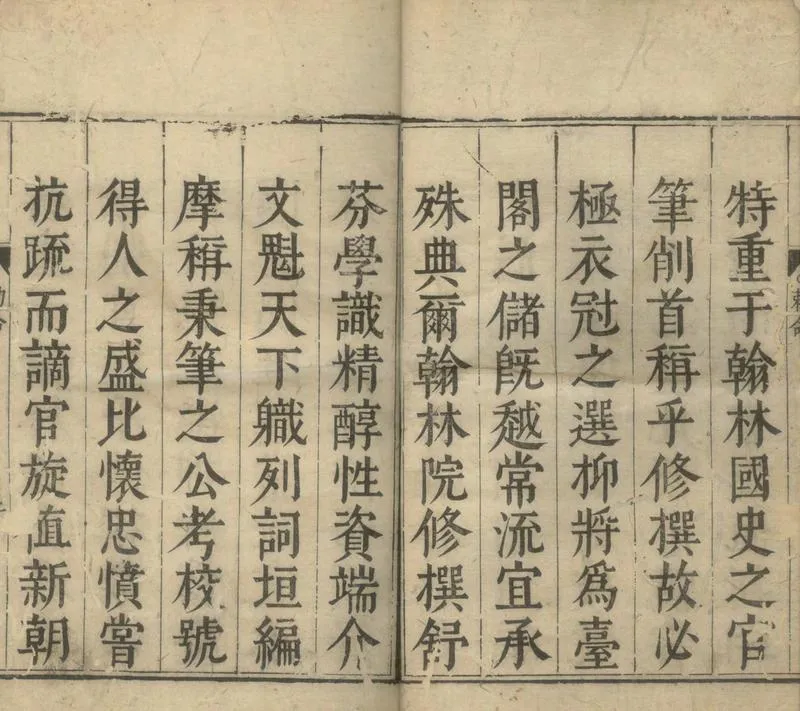 特重于翰林國史之官
筆削首稱乎修撰故必
極衣冠之選抑將爲臺
閣之儲旣越常流宜承
殊典爾翰林院修撰舒
芬學識精醇性資端介
文魁天下職列詞垣編
摩稱秉筆之公考校號
得人之盛比懷忠憤嘗
抗疏而謫官旋直新朝